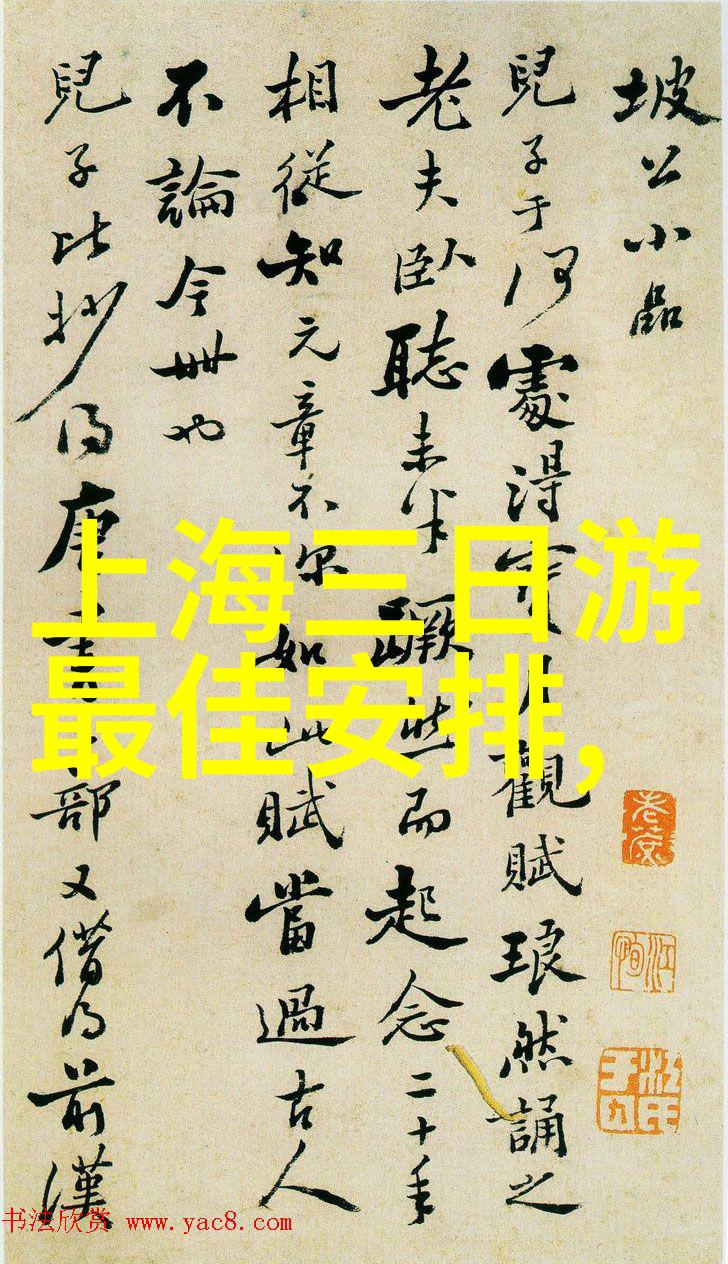 坡公小品
兒子于何處得寶月觀賦琅然誦之
老夫臥聽未半蹶然而起念二十年
相從知元章不深如此賦當過古人
不論今世也
兒子比抄得唐書一部又借得前漢
上海三日游
最佳安排,
书法欣赏 www.yac8.com